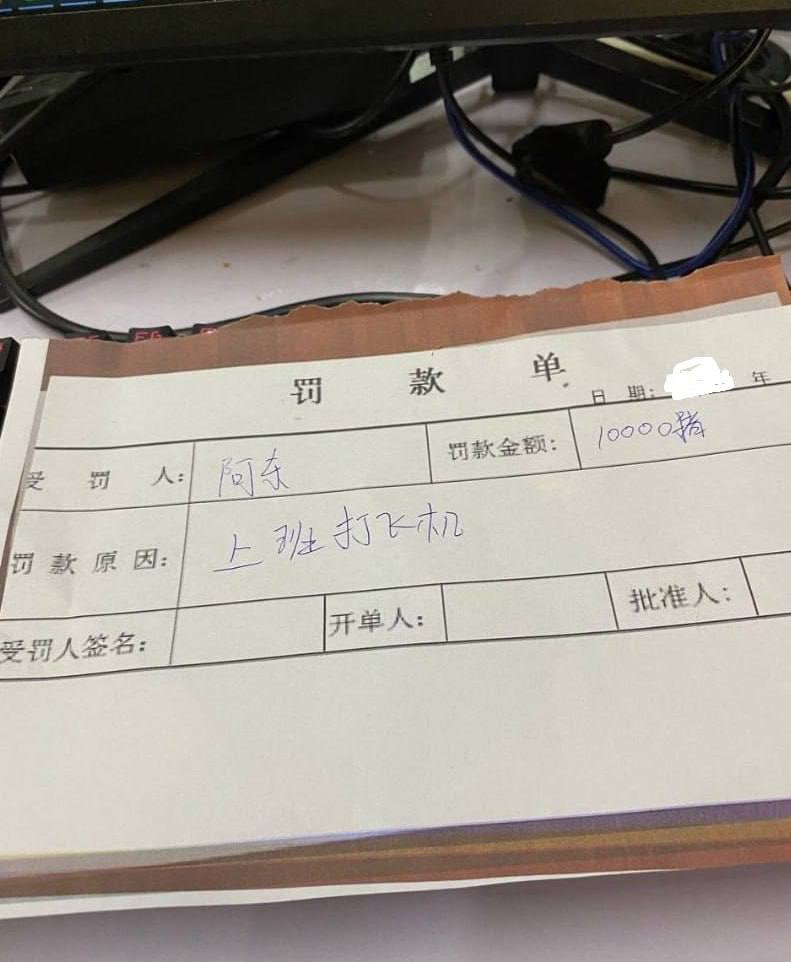 罚款单
日期: 年
受罚人: 阿东 罚款金额: 10000
罚款原因: 上班打飞机
受罚人签名: 开单人: 批准人: